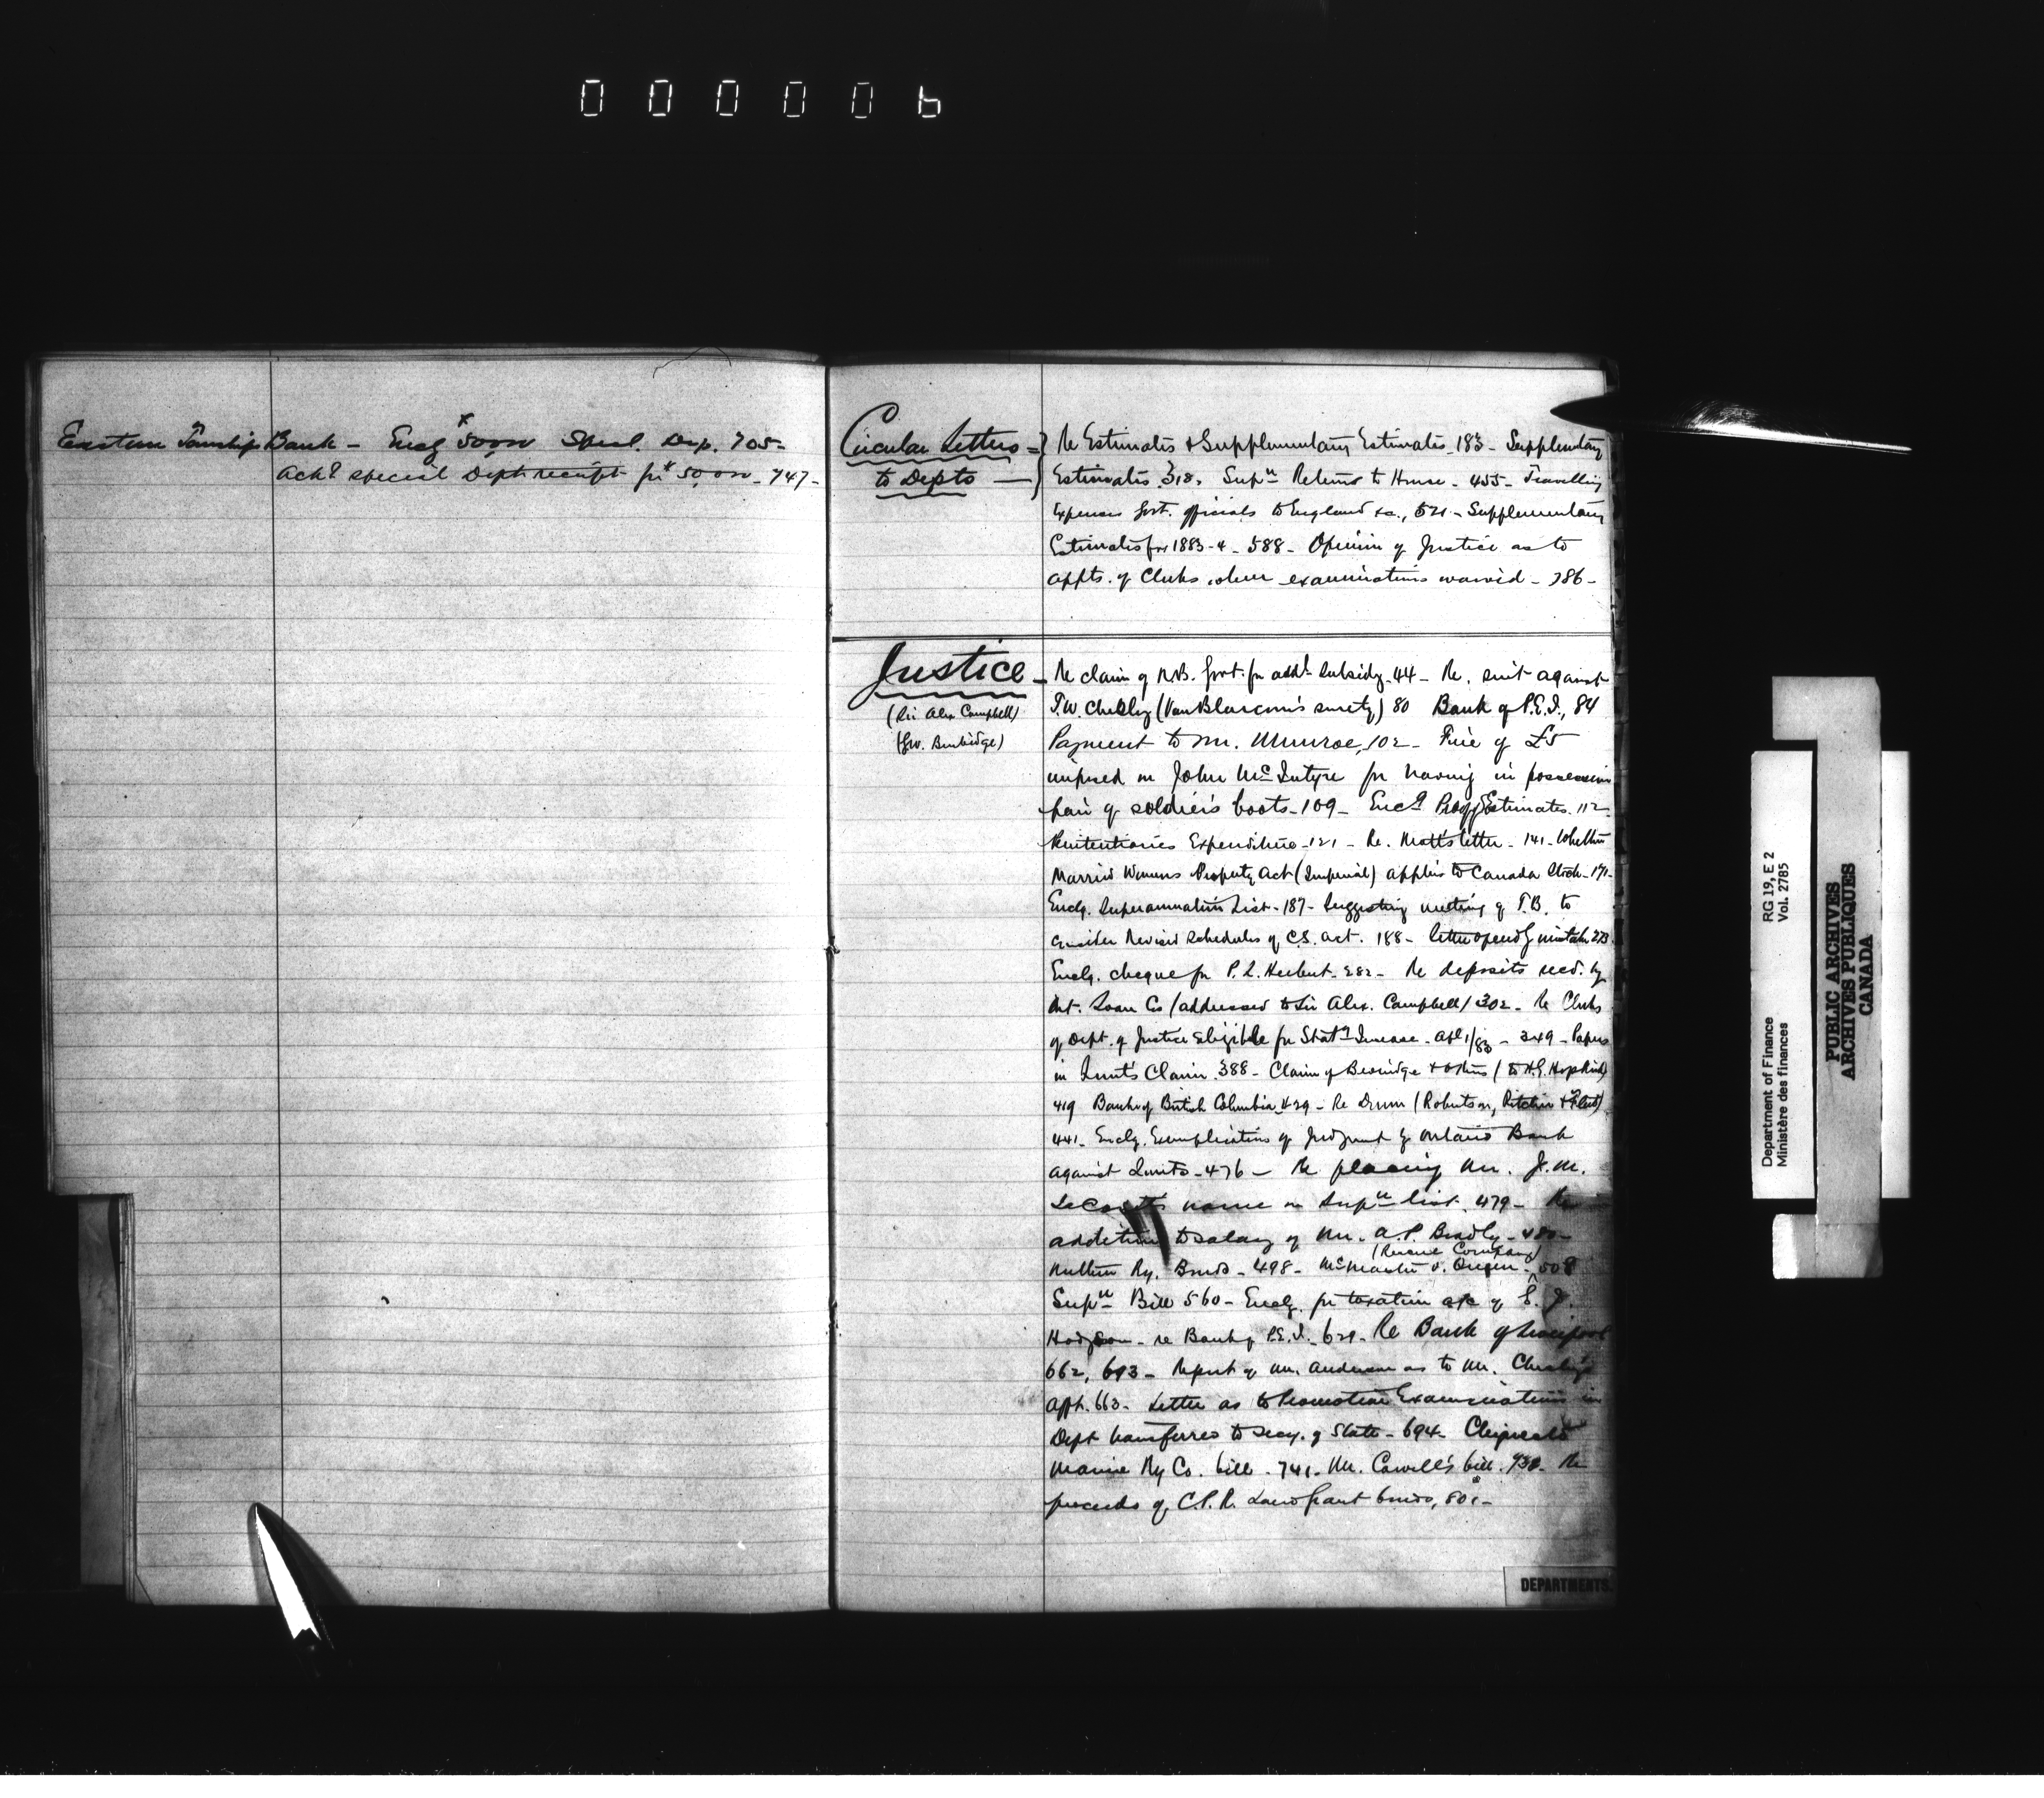 000006
Eastern Township Bank - Enclg $50,000 Specl. Dep. 705-
Ackg special Dept. receipt for $50,000 - 747-
Circular Letters =
to Depts
Re Estimates & Supplementary Estimates 183 - Supplementary
Estimates 318. Supn Returns to House - 455 - Travelling
Expenses Govt. officials to England &c., 521 - Supplementary
Estimates for 1883-4 - 588 - Opinion of Justice as to
appts. of Clerks where examinations waived - 786 -
Justice -
(Sir Alex Campbell)
(G.W. Burbidge)
Re claim of N.B. Govt. for addl subsidy - 44 - Re. suit against
T.W. Chesley (Van Blarcom's surety) 80 Bank of P.E.I., 84
Payment to Mr. Munroe, 102 - Fine of £5
imposed on John McIntyre for having in possession
pair of soldier's boots - 109 - Encg Estimates. 112
Penitentiaries Expenditure - 121 - Re. letter - 141 - Whether
Married Womens Property Act (Imperial) applies to Canada Stock - 171 -
Enclg. Superannuation List - 187 - Suggesting meeting of T.B. to
consider Revised Schedules of C.S. Act. 188 - letter opend by mistake 273
Enclg. cheque for P. L. Herbert - 282 - Re deposits recd. by
Ont. Loan Co (addressed to Sir Alex. Campbell) 302 - Re Clerks
of Dept. of Justice Eligible for Staty Increase - Apl 1/83 - 349 - Papers
in Lunt's Claim 388 - Claim of Beveridge & others (to H.G. Hopkirk)
419 Bank of British Columbia 429 - Re Drum (Robertson, Ritchie & Fleet)
441 - Enclg. Exemplification of Judgment by Ontario Bank
against - 476 - Re placing Mr. J. M.
name on Supn list. 479 - Re
addition to salary of Mr. A. P. Bradly - 480 -
Northern Ry. Bonds - 498 - McMaster v. Queen (Rescue Company) 508
Supn Bill 560 - Enclg. for taxation a/c of E. J.
Hodgson - re Bank of P.E.I. 629 - Re Bank of Liverpool
662, 693 - Report of Mr. Anderson as to Mr. Chesley's
appt. 663 - Letter as to Promotion Examinations in
Dept transferred to Secy. of State - 694 - Chignecto
Marine Ry Co. bill - 741 - Mr. bill. 738 - Re
proceeds of C.P.R. Land Grant bonds, 801 -
DEPARTMENTS.
Department of Finance RG 19, E 2
Ministère des finances Vol. 2785
PUBLIC ARCHIVES
ARCHIVES PUBLIQUES
CANADA